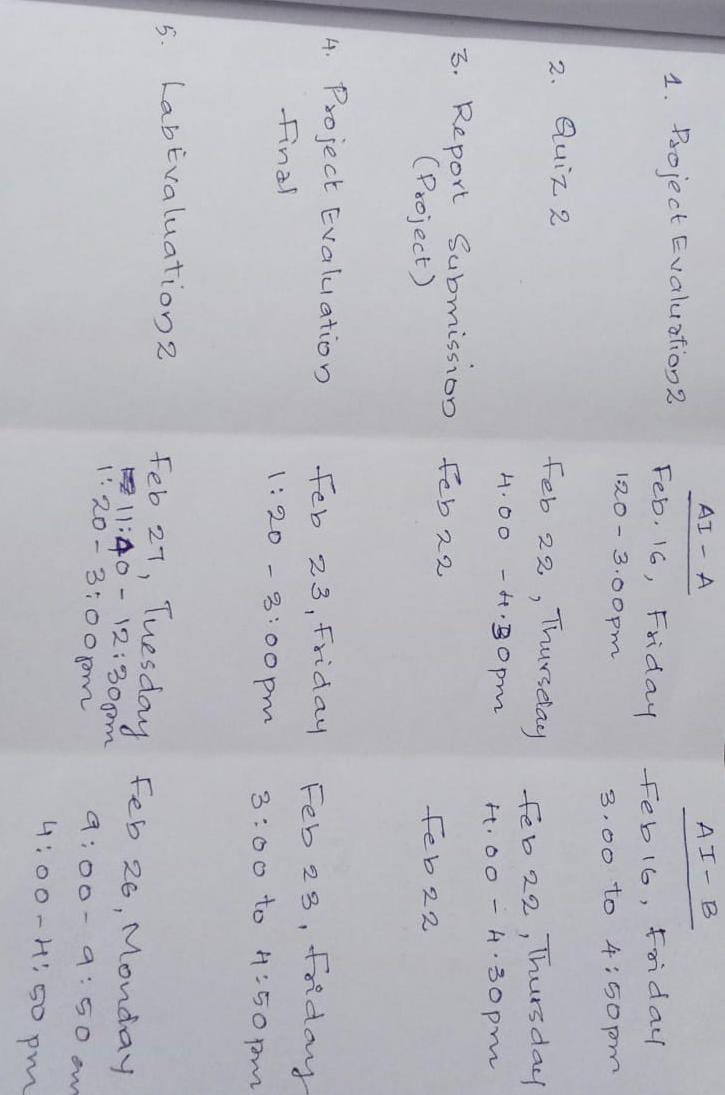 AI - A
AI - B
1. Project Evaluation 2
Feb. 16, Friday
1:20 - 3.00pm
Feb 16, Friday
3.00 to 4:50pm
2. Quiz 2
Feb 22, Thursday
4.00 - 4.30pm
Feb 22, Thursday
4.00 - 4.30pm
3. Report Submission
(Project)
Feb 22
Feb 22
4. Project Evaluation
Final
Feb 23, Friday
1:20 - 3:00pm
Feb 23, Friday
3:00 to 4:50pm
5. Lab Evaluation 2
Feb 27, Tuesday
11:40 - 12:30pm
1:20 - 3:00pm
Feb 26, Monday
9:00 - 9:50 am
4:00 - 4:50 pm